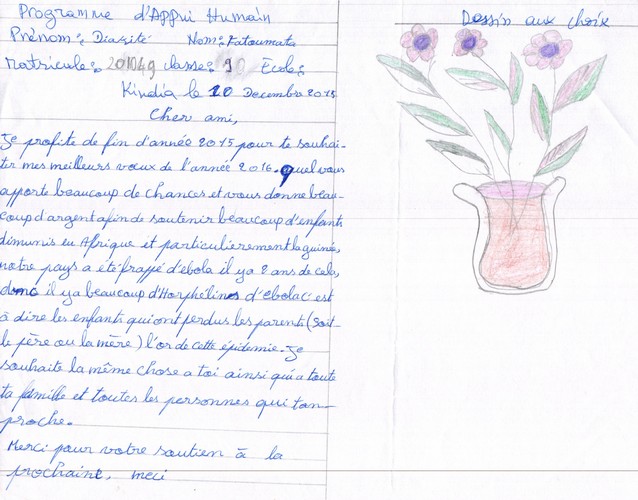 Programme d'Appui Humain
Prénom: Diarité Nom: Fatoumata
Matricule: 201049 classe: 90 École:
Kindia le 10 Decembre 2015
Cher ami,
Je profite de fin d'année 2015 pour te souhai-
ter mes meilleurs vœux de l'année 2016. quel vous
apporte beaucoup de chances et vous donne beau-
coup d'argent afin de soutenir beaucoup d'enfants
dimunis en Afrique et particulierement la guinée,
notre pays a été frappé d'ebola il ya 2 ans de cela,
donc il ya beaucoup d'Horphélines d'ebola c'est
à dire les enfants qui ont perdus les parents (soit
le père ou la mère) l'or de cette épidemie. Je
souhaite la même chose a toi ainsi qu'a toute
ta famille et toutes les personnes qui tan-
proche.
Merci pour votre soutien à la
prochaine, meci
Dessin aux choix